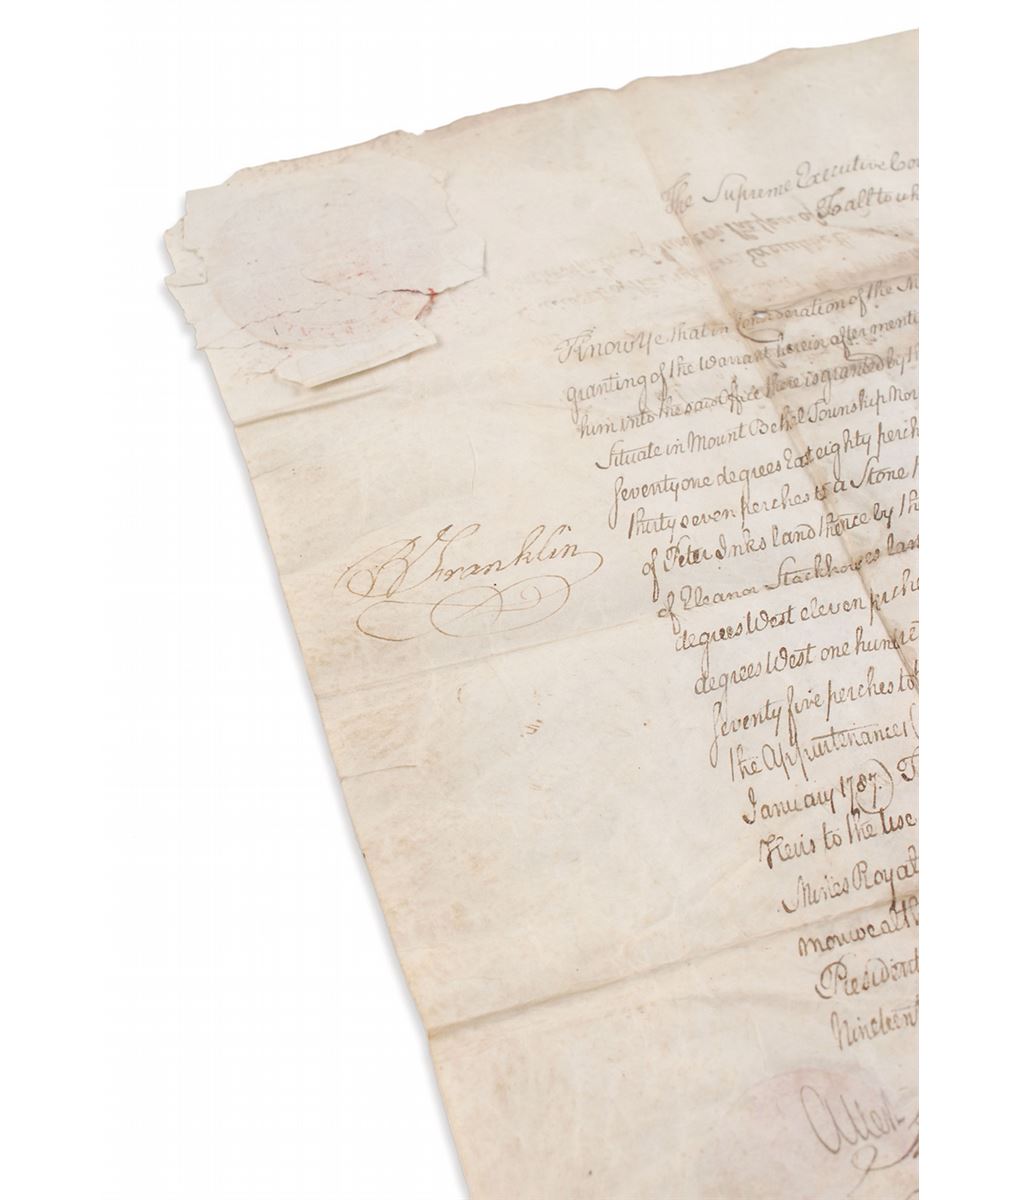 The Supreme Executive Cou
To all to wh
Know Ye that in Consideration of the M
granting of the Warrant herein after menti
him into the said Office there is granted by th
Situate in Mount Bethel Township Nor
Seventy one degrees East eighty perch
thirty seven perches to a Stone
of Peter Inks land thence by th
B Franklin
of Eleanor Stackhouses lan
degrees West eleven perche
degrees West one hundre
Seventy five perches to
the Appurtenances
January 1787.) T
Heirs to the use
Mines Royal
monwealth
President
Nineteen
Attest